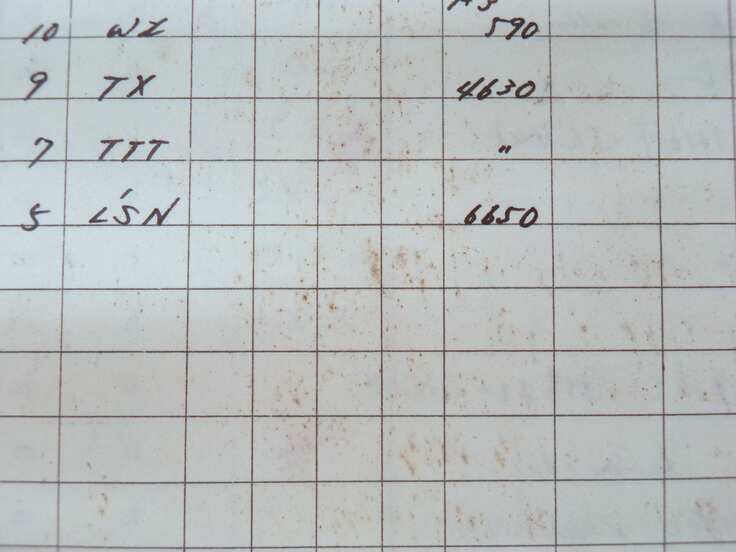 10 WZ 590
9 TX 4630
7 TTT "
5 ĹSŃ 6650